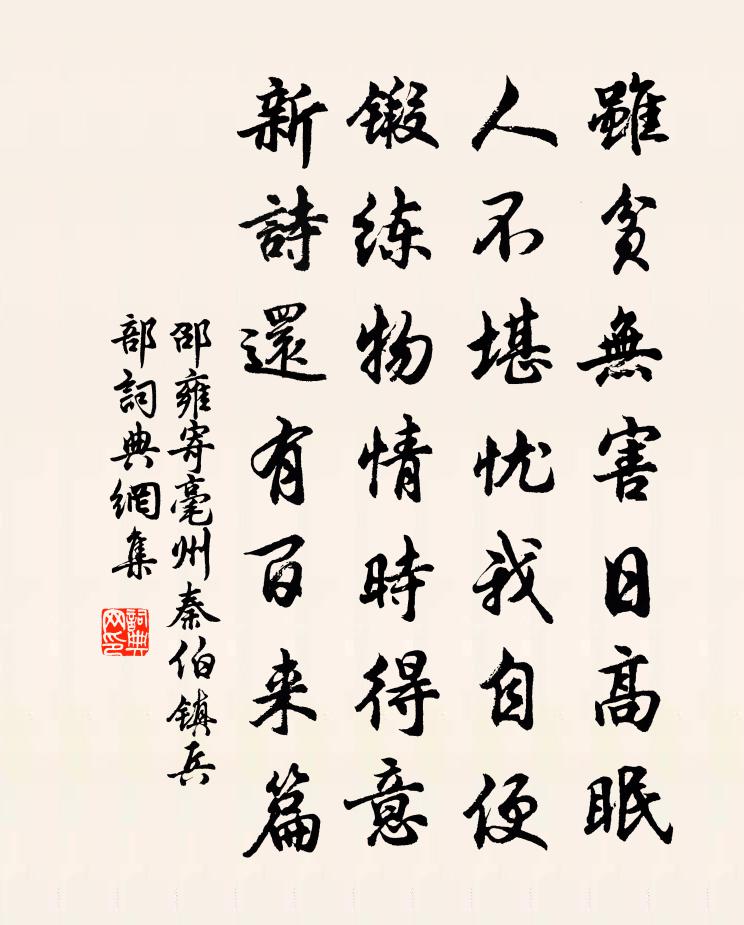 雖貧無害日高眠
人不堪忧我自便
鍛练物情時得意
新詩還有百来篇
邵雍寄亳州秦伯鎮兵
部詞典網集
詞典网印